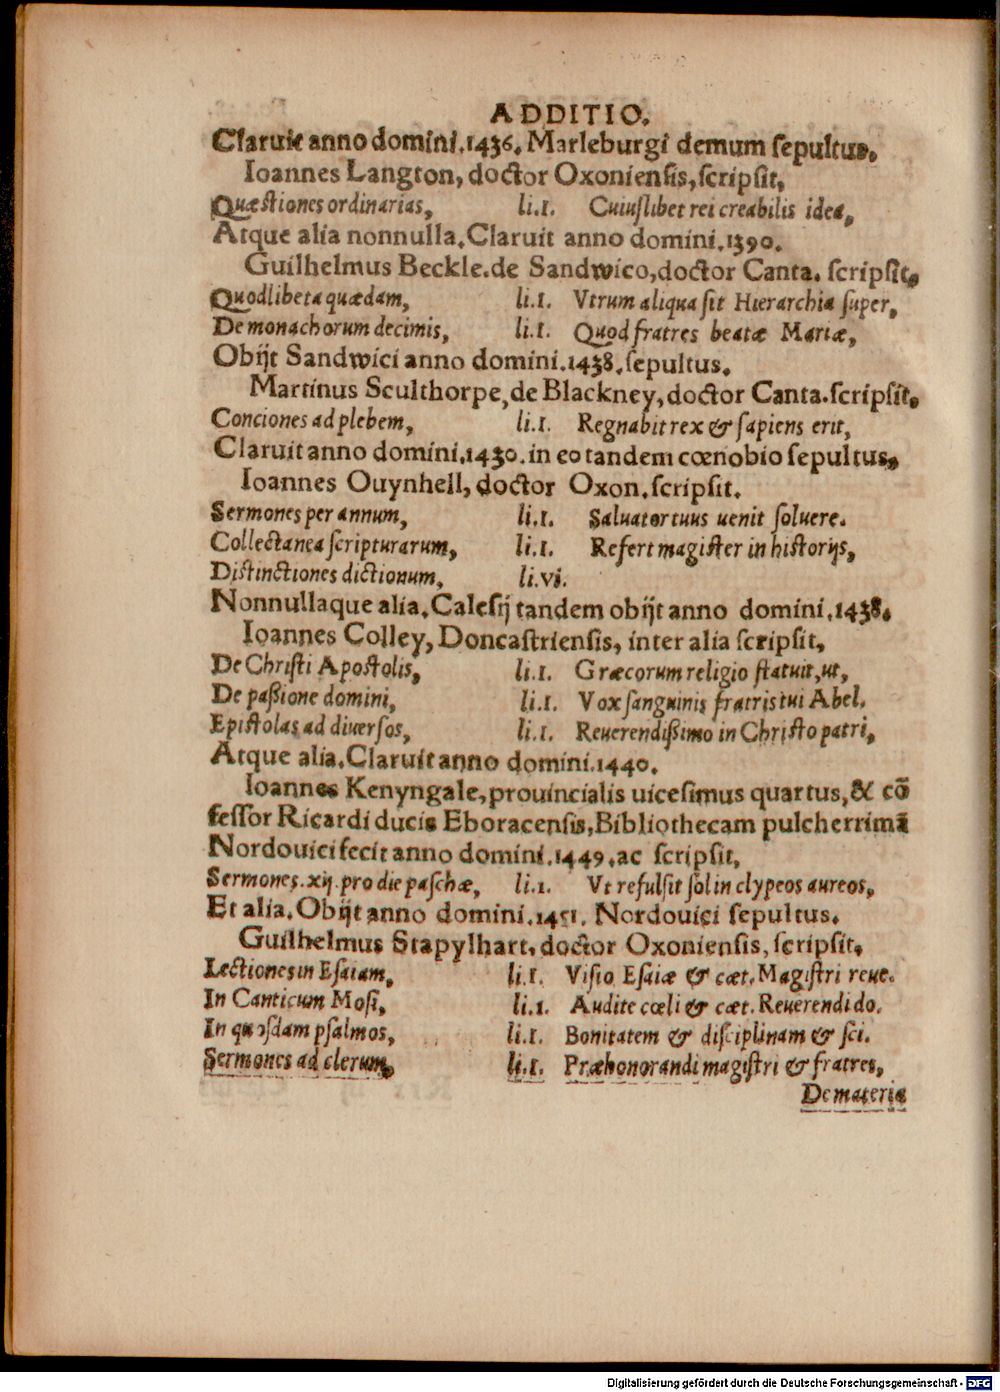 ADDITIO.
Claruit anno domini.1436. Marleburgi demum sepultus.
Ioannes Langton, doctor Oxoniensis, scripsit,
Quæstiones ordinarias, li.I. Cuiuslibet rei creabilis idea,
Atque alia nonnulla. Claruit anno domini.1390.
Guilhelmus Beckle.de Sandwico, doctor Canta. scripsit,
Quodlibeta quædam, li.I. Vtrum aliqua sit Hierarchia super,
De monachorum decimis, li.I. Quod fratres beatæ Mariæ,
Obijt Sandwici anno domini.1438. sepultus.
Martinus Sculthorpe, de Blackney, doctor Canta. scripsit,
Conciones ad plebem, li.I. Regnabit rex & sapiens erit,
Claruit anno domini.1430. in eo tandem cœnobio sepultus,
Ioannes Ouynhell, doctor Oxon. scripsit.
Sermones per annum, li.I. Saluator tuus uenit soluere.
Collectanea scripturarum, li.I. Refert magister in historijs,
Distinctiones dictionum, li.vi.
Nonnullaque alia. Calesij tandem obijt anno domini.1438.
Ioannes Colley, Doncastriensis, inter alia scripsit,
De Christi Apostolis, li.I. Græcorum religio statuit, ut,
De paßione domini, li.I. Vox sanguinis fratris tui Abel.
Epistolas ad diuersos, li.I. Reuerendißimo in Christo patri,
Atque alia. Claruit anno domini.1440.
Ioannes Kenyngale, prouincialis uicesimus quartus, & cō
fessor Ricardi ducis Eboracensis, Bibliothecam pulcherrimā
Nordouici fecit anno domini.1449. ac scripsit,
Sermones.xij.pro die paschæ, li.1. Vt refulsit sol in clypeos aureos,
Et alia. Obijt anno domini.1451. Nordouici sepultus.
Guilhelmus Stapylhart, doctor Oxoniensis, scripsit,
Lectiones in Esaiam, li.I. Visio Esaiæ & cæt. Magistri reue.
In Canticum Mosi, li.1. Audite cœli & cæt. Reuerendi do.
In quosdam psalmos, li.I. Bonitatem & disciplinam & sci.
Sermones ad clerum, li.I. Præhonorandi magistri & fratres,
De materia
Digitalisierung gefördert durch die Deutsche Forschungsgemeinschaft - DFG